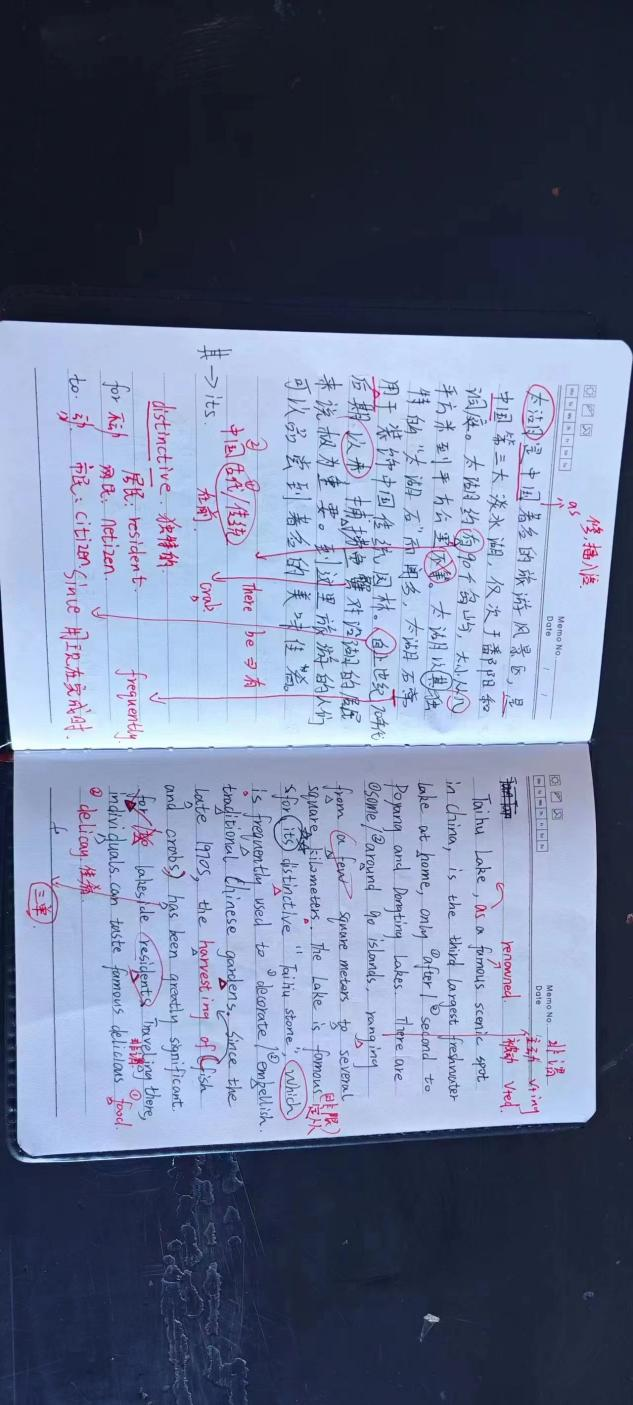 修,插入语.
as
Memo No.
Date / /
太湖是中国著名的旅游风景区,是
中国第三大淡水湖,仅次于鄱阳和
洞庭。太湖约有90个岛屿,大小从几
平方米到平方公里不等。太湖以其独
特的“太湖石”而闻名,太湖石常
用于装饰中国传统园林。自上世纪70年代
后期以来,捕捞鱼蟹对沿湖的居民
来说极为重要。到这里旅游的人们
可以品尝到著名的美味佳肴。
② ①
中国古代/传统 There be 句有
在前 crab
其→its.
distinctive 独特的.
for 不动 居民: resident. frequently.
网民: netizen.
to 动 市民: citizen. Since 用现在完成时.
非谓
Memo No.
Date / /
主动 Ving
renowned. 被动 Ved.
Taihu Lake, as a famous scenic spot
in China, is the third largest freshwater
lake at home, only ① after / ② second to
Poyang and Dongting Lakes. There are
① some / ② around 90 islands, ranging
from a few square meters to several
square kilometers. The Lake is famous 非限)
定从
for its distinctive "Taihu stone", which
is frequently used to ① decorate / ② embellish.
traditional Chinese gardens. Since the
late 1970s, the harvesting of (fish
and crabs) has been greatly significant
for lakeside residents. Traveling there,
非谓 ①
individuals can taste famous delicious food.
② delicay 佳肴
三单